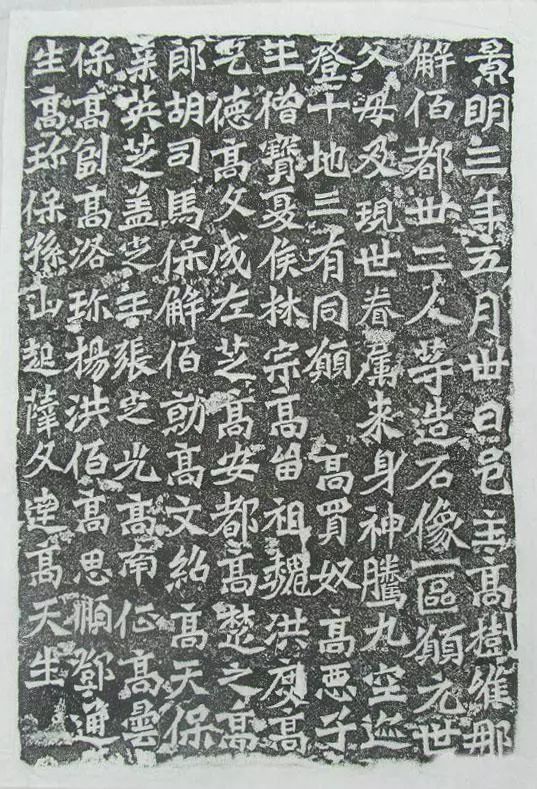 景明三年五月卅日邑主高樹維那
解佰都卅二人等造石像一區願元世
父母及現世眷屬來身神騰九空迹
登十地三有同願 高買奴 高惡子
王僧寶夏侯林宗高留祖魏洪度高
乞德高文成左芝高安都高楚之高
郎胡司馬保解佰勍高文紹高天保
桒英芝盖定王張定光高南征高曇
保高副高洛珎楊洪佰高思順鄧通
生高珎保孫山起薛文達高天生